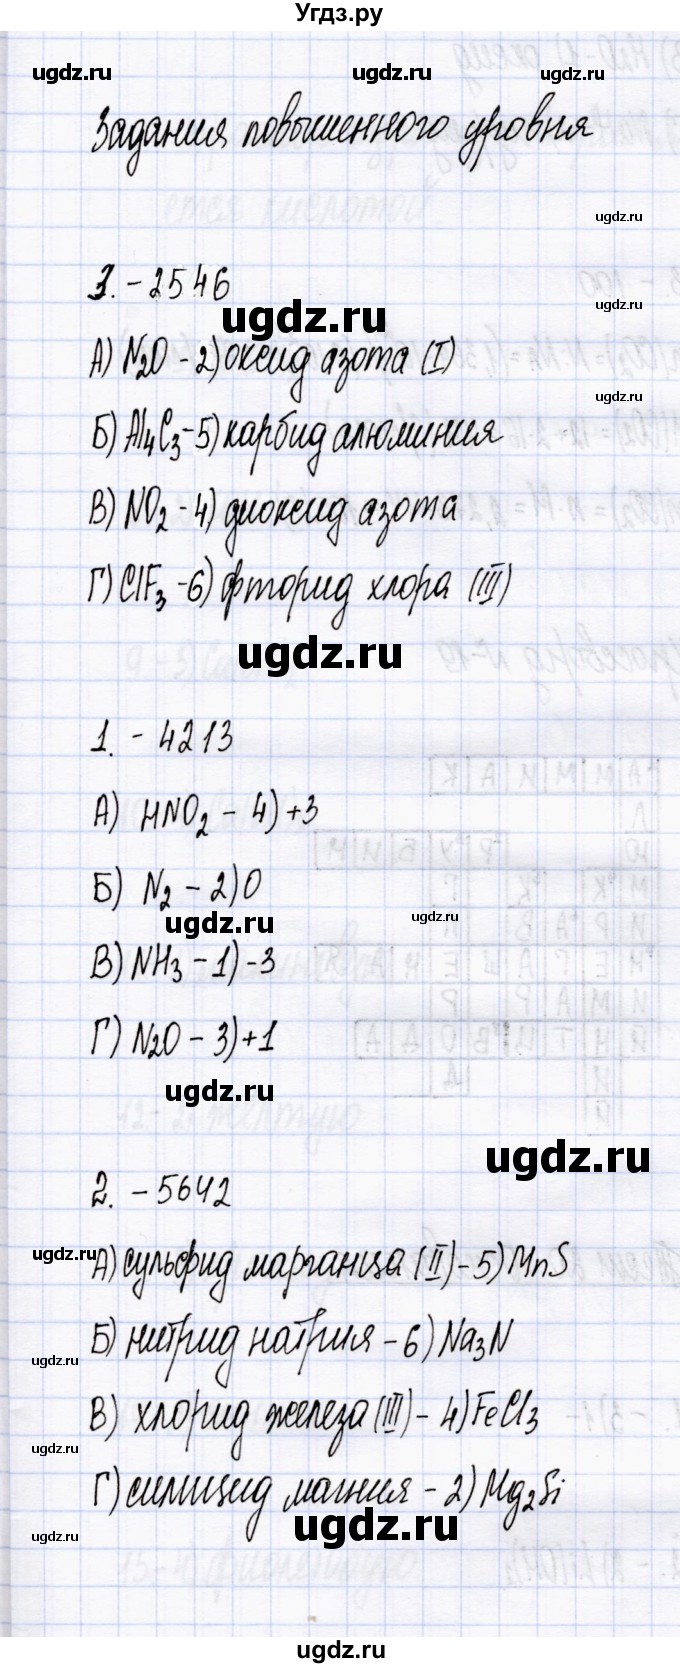 Угдз.ру
ugdz.ru ugdz.ru ugdz.ru
Задания повышенного уровня
ugdz.ru
3. - 2546
ugdz.ru ugdz.ru
А) N2O - 2) оксид азота (I)
ugdz.ru
Б) Al4C3 - 5) карбид алюминия
В) NO2 - 4) диоксид азота
Г) ClF3 - 6) фторид хлора (III)
ugdz.ru
1. - 4213
А) HNO2 - 4) +3
Б) N2 - 2) 0
ugdz.ru ugdz.ru
В) NH3 - 1) -3
Г) N2O - 3) +1
ugdz.ru
ugdz.ru
2. - 5642
ugdz.ru
А) сульфид марганца (II) - 5) MnS
Б) нитрид натрия - 6) Na3N
ugdz.ru
В) хлорид железа (III) - 4) FeCl3
ugdz.ru
Г) силицид магния - 2) Mg2Si
ugdz.ru ugdz.ru
ugdz.ru